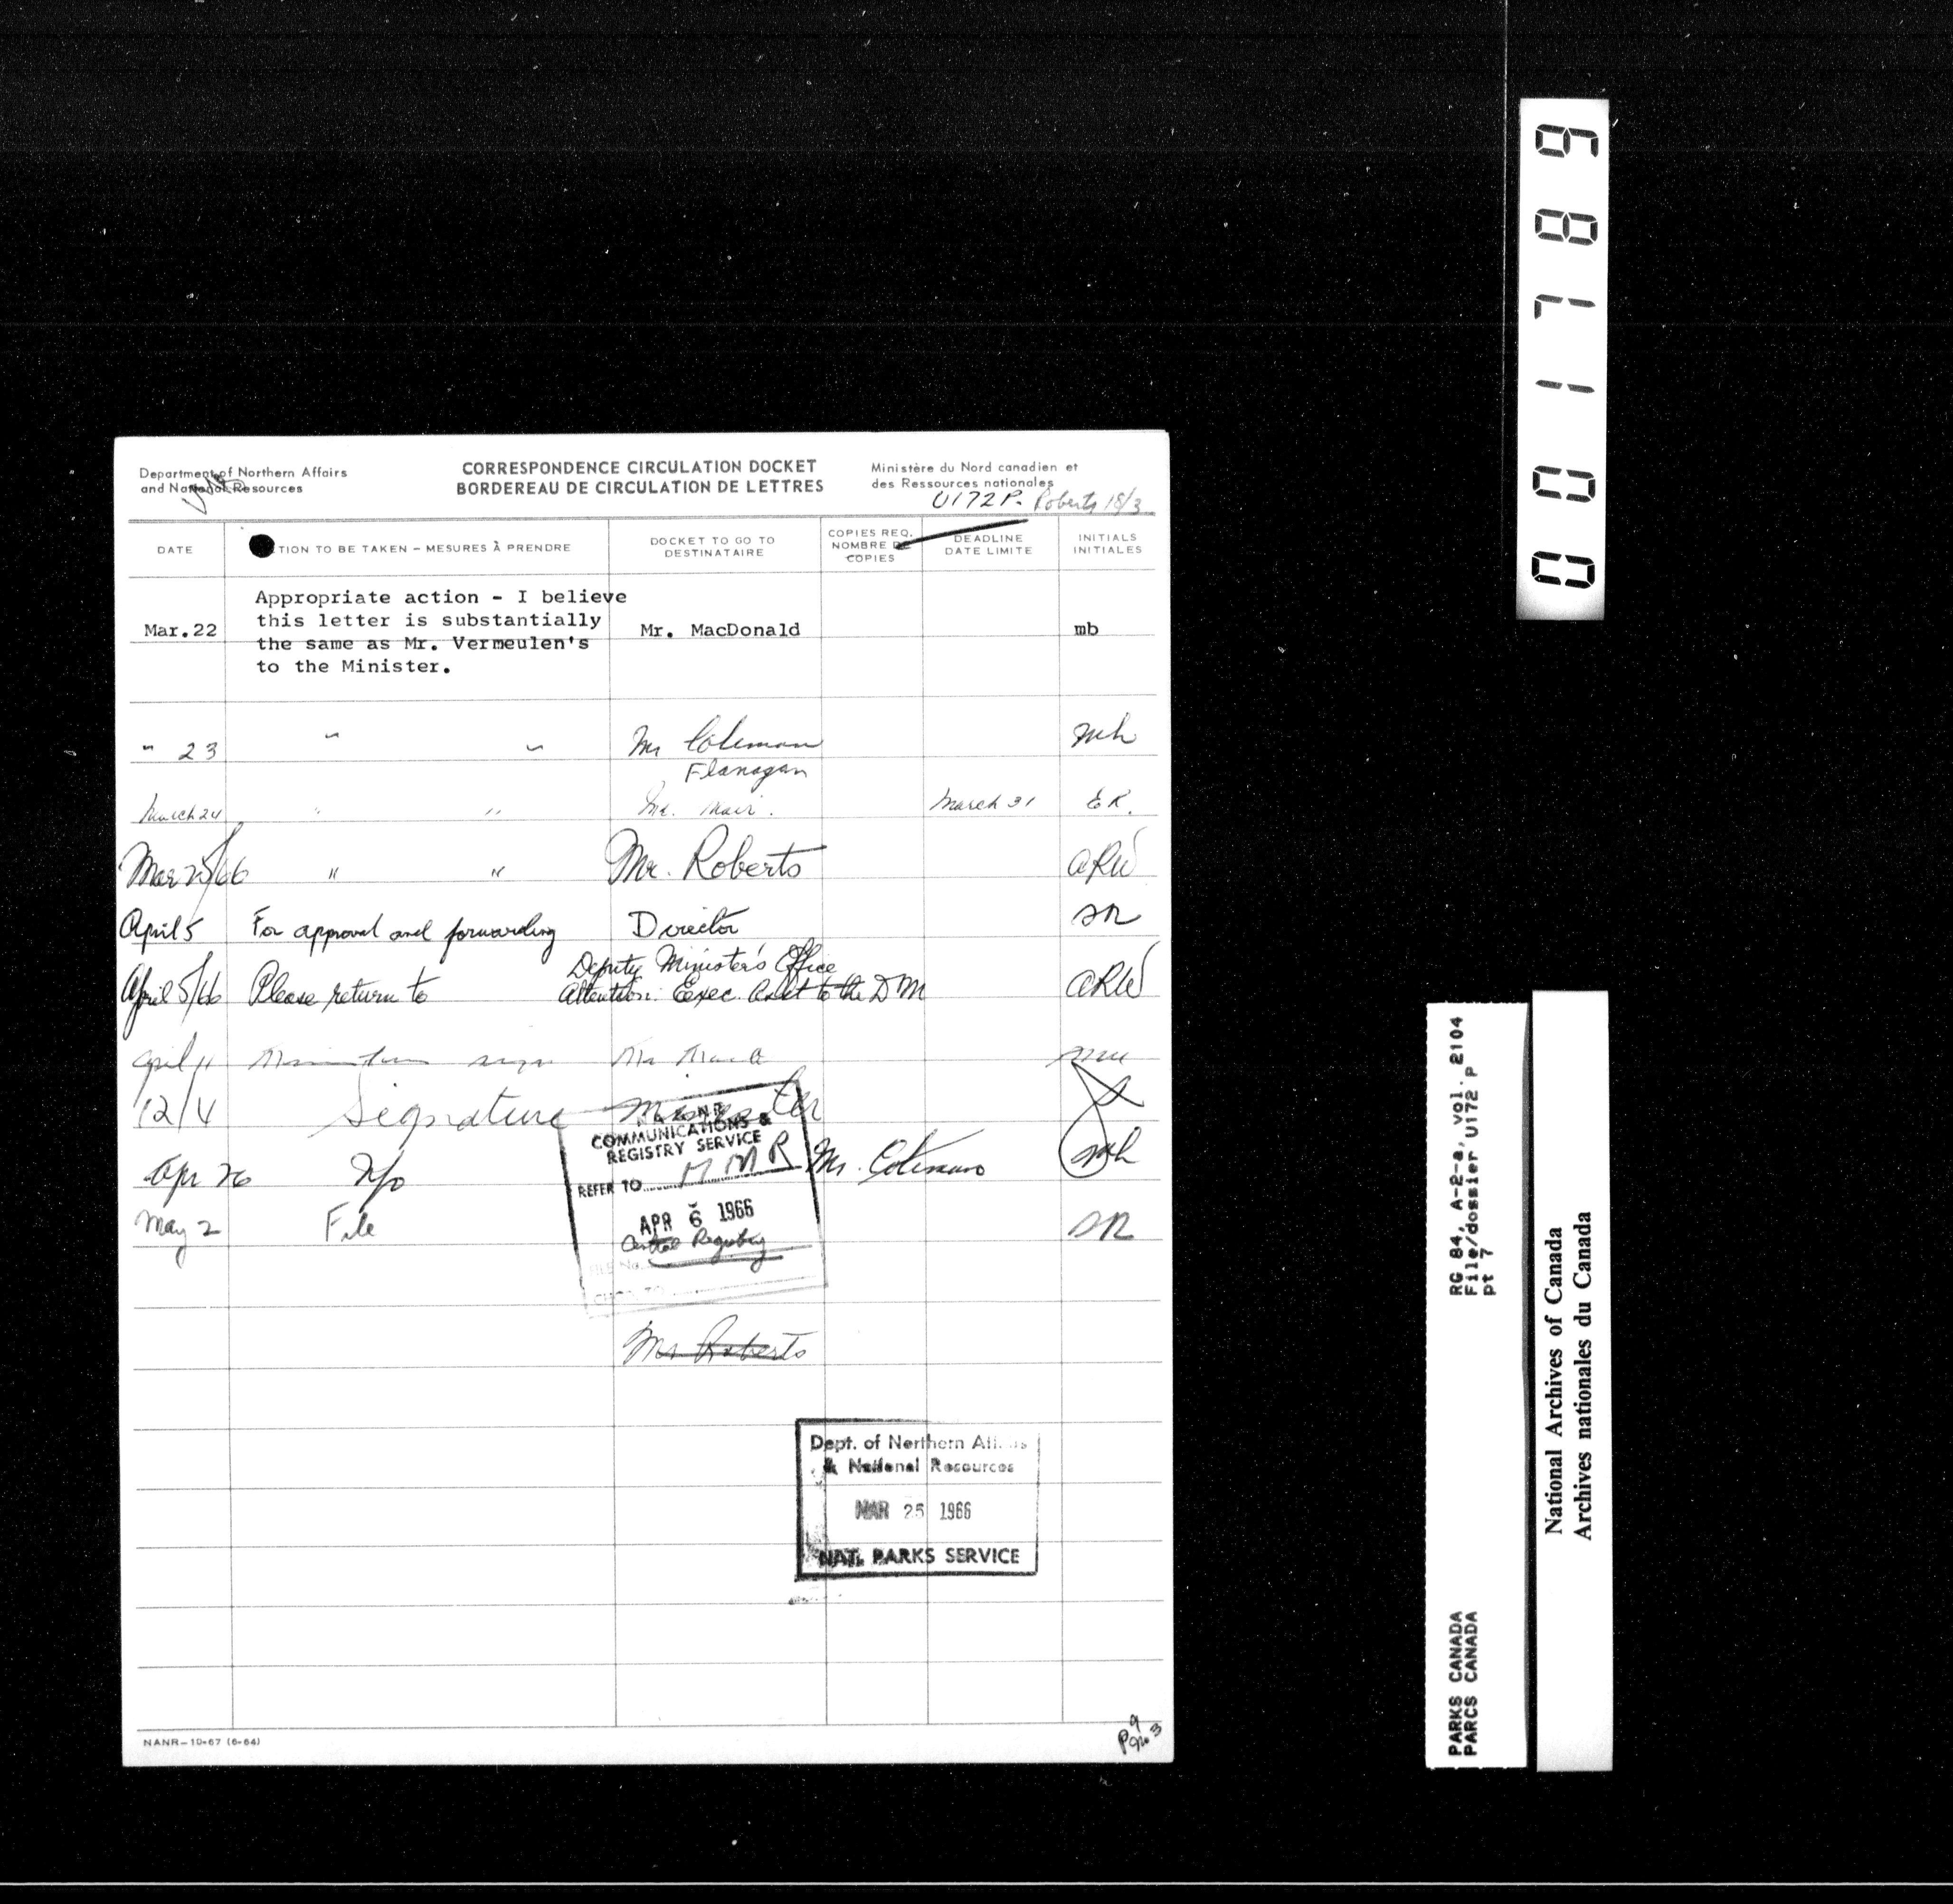 Department of Northern Affairs
and National Resources
CORRESPONDENCE CIRCULATION DOCKET
BORDEREAU DE CIRCULATION DE LETTRES
Ministère du Nord canadien et
des Ressources nationales
U172P. Roberts 18/3
DATE
TION TO BE TAKEN – MESURES À PRENDRE
DOCKET TO GO TO
DESTINATAIRE
COPIES REQ.
NOMBRE DE
COPIES
DEADLINE
DATE LIMITE
INITIALS
INITIALES
Appropriate action - I believe
this letter is substantially
the same as Mr. Vermeulen's
to the Minister.
Mar.22
Mr. MacDonald
mb
" 23 " " Mr Coleman mh
Flanagan
March 24 " " Mr. Nair. March 31 EK.
Mar 25/66 " " Mr. Roberts
April 5 For approval and forwarding Director
Deputy Minister's Office
April 5/66 Please return to Attention: Exec. Asst to the DM
April 11
12/4 Signature Minister
COMMUNICATIONS &
REGISTRY SERVICE
REFER TO MMR
APR 6 1966
Central Registry
FILE No.
Apr 26 Mr. Coleman mh
May 2 File
Mr Roberts
Dept. of Northern Affairs
& National Resources
MAR 25 1966
NAT. PARKS SERVICE
NANR-10-67 (6-64)
001789
RG 84, A-2-a, vol. 2104
File/dossier U172 P
pt 7
PARKS CANADA
PARCS CANADA
National Archives of Canada
Archives nationales du Canada